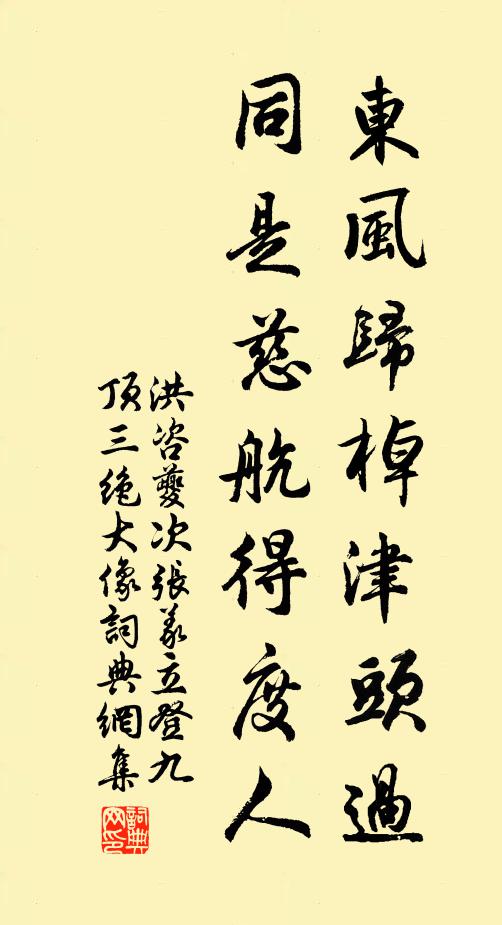 東風歸棹津頭過
同是慈航得度人
洪咨夔次張義立登九
頂三絶大像詞典網集
詞典
网印